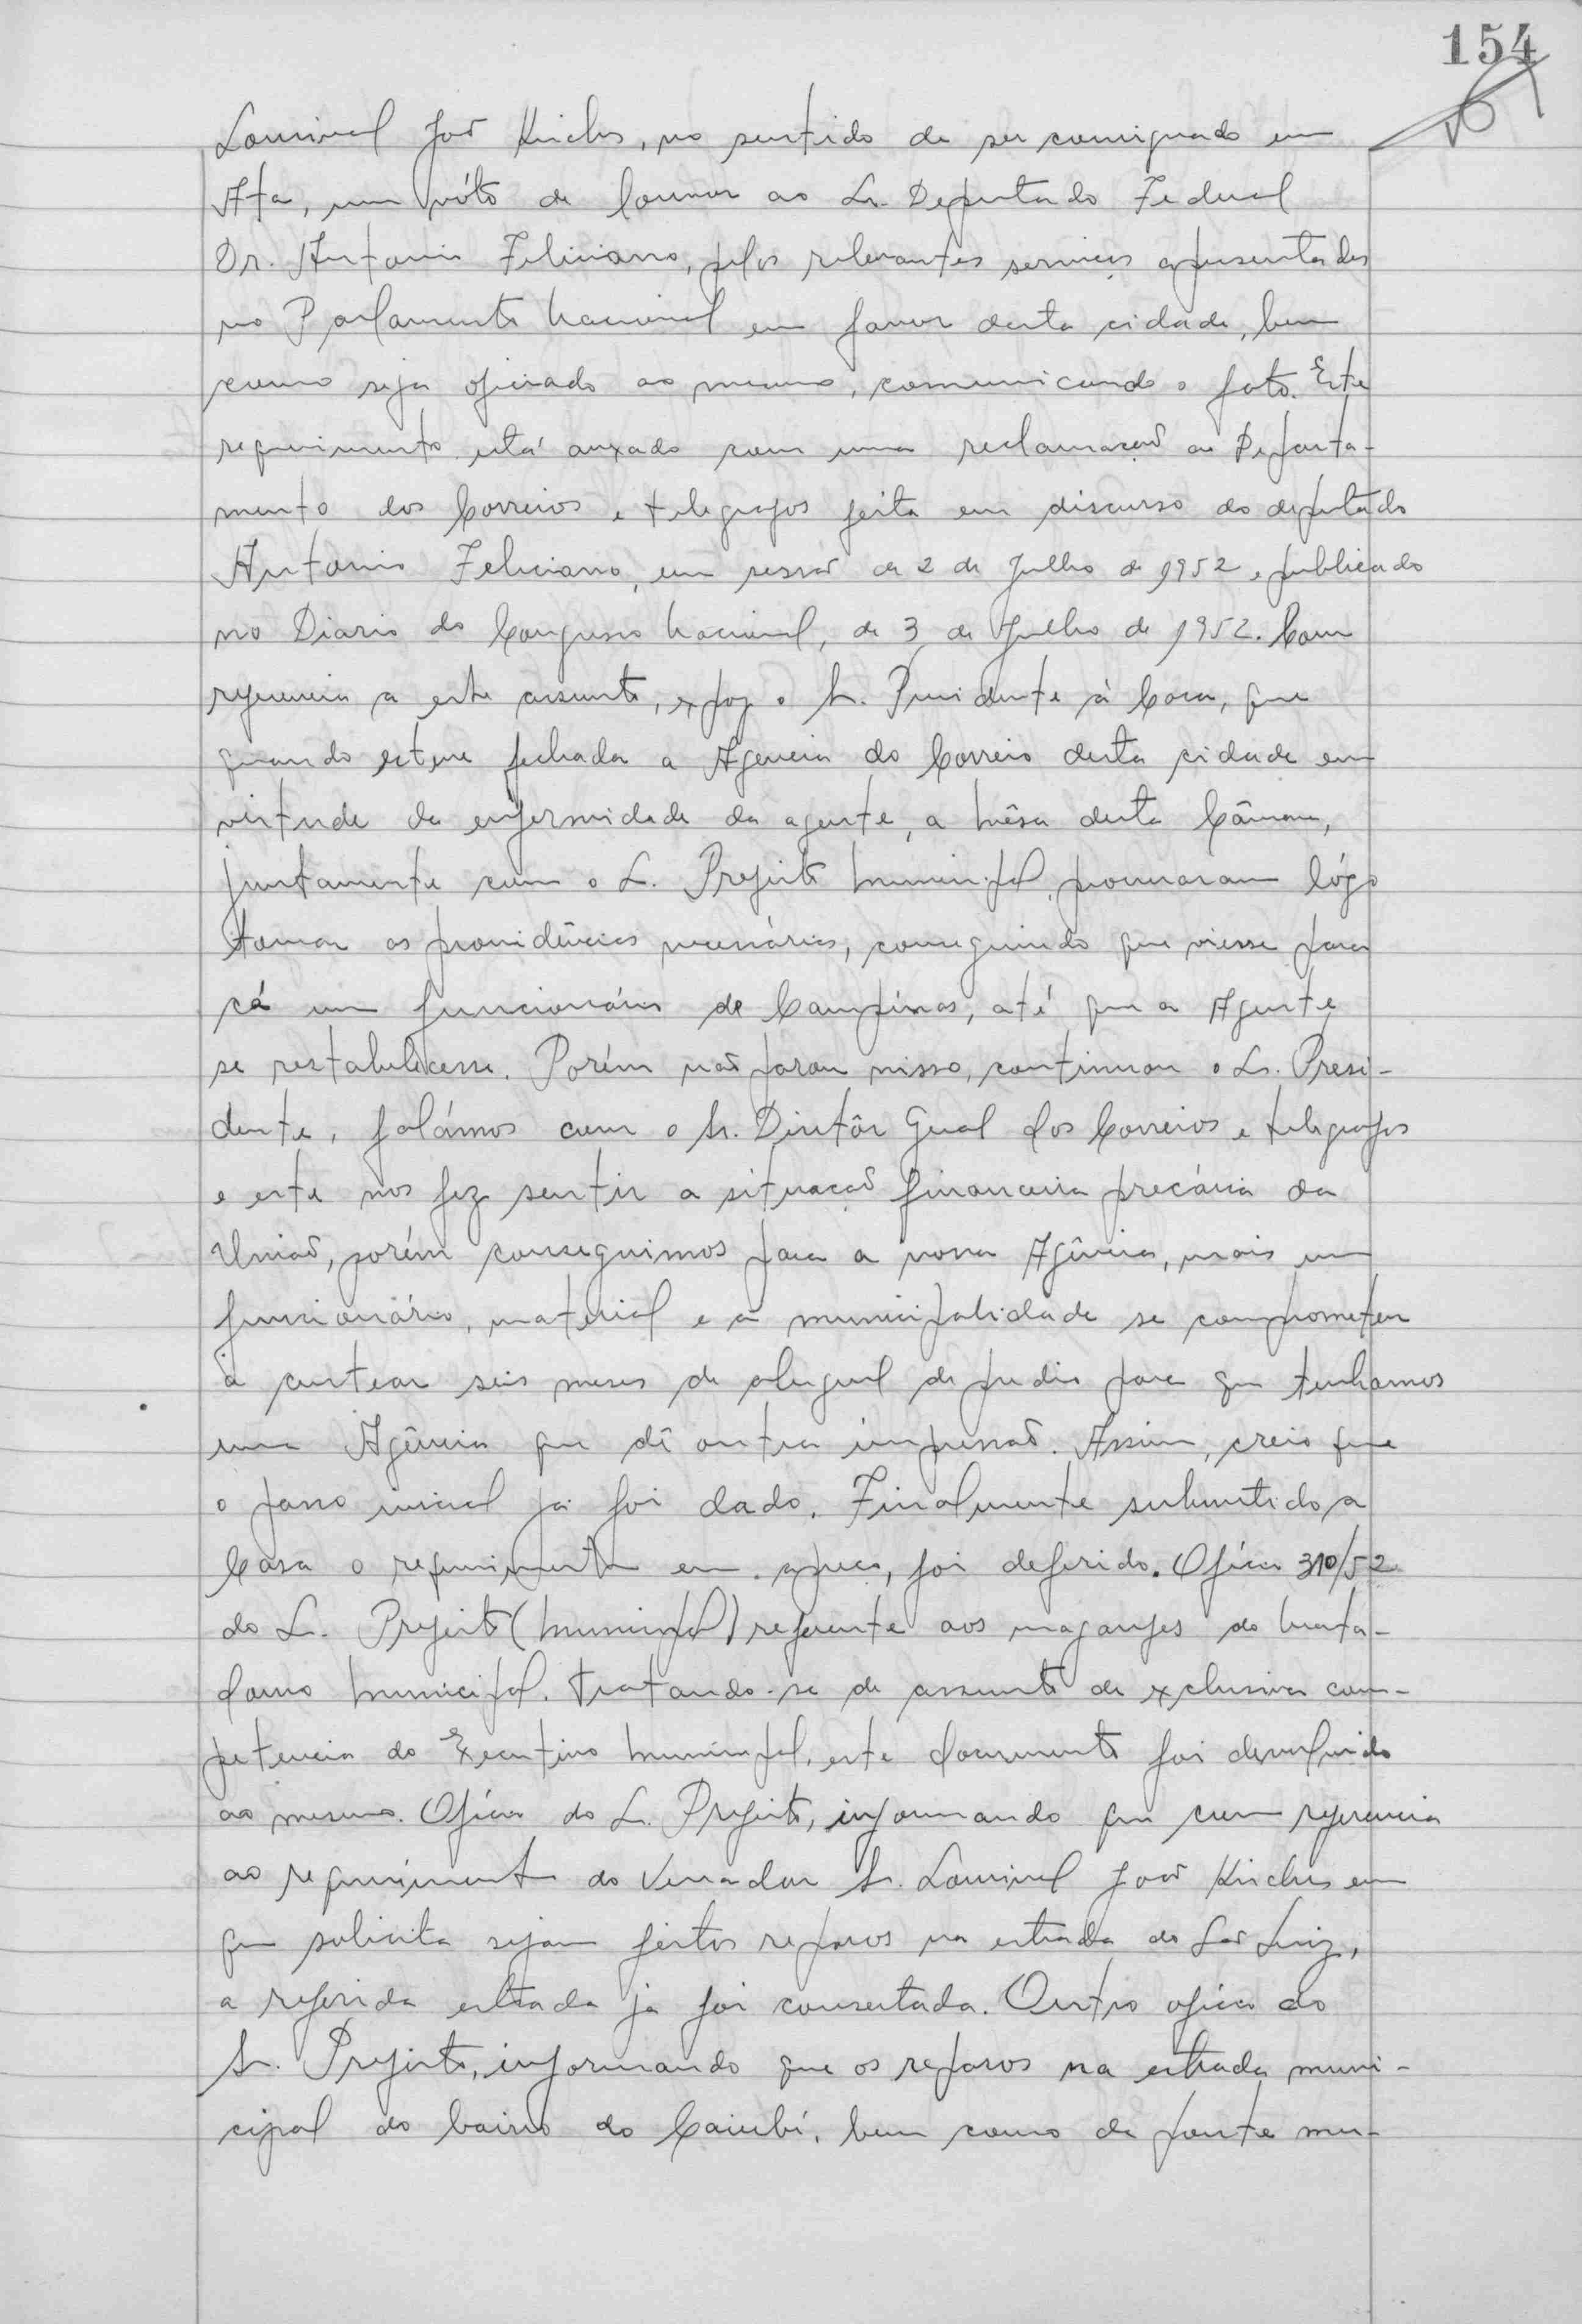 154
Lourival José Kirches, no sentido de ser consignado em
Ata, um vóto de louvor ao Sr. Deputado Federal
Dr. Antonio Feliciano, pelos relevantes serviços apresentados
no Parlamento Nacional em favor desta cidade, bem
como seja oficiado ao mesmo, comunicando o fato. Este
requerimento está anexado com uma reclamação ao Departa-
mento dos Correios e telegrafos feita em discurso do deputado
Antonio Feliciano, em sessão de 2 de Julho de 1952, e publicado
no Diario do Congresso Nacional, de 3 de Julho de 1952. Com
referencia a este assunto, expoz o Sr. Presidente à Casa, que
quando esteve fechada a Agencia do Correio desta cidade em
virtude da enfermidade da agente, a Mêsa desta Câmara,
juntamente com o Sr. Prefeito Municipal, procuraram lógo
tomar as providências necessárias, conseguindo que viesse para
cá um funcionário de Campinas, até que a Agente
se restabelecesse. Porém não parou nisso, continuou o Sr. Presi-
dente, falámos com o Sr. Diretôr Geral dos Correios e telegrafos
e este nos fez sentir a situação financeira precária da
União, porém conseguimos para a nossa Agência, mais um
funcionário, material e a municipalidade se comprometeu
à custear seis meses de aluguel de predio para que tenhamos
uma Agência que dê outra impressão. Assim, creio que
o passo inicial já foi dado. Finalmente submetido a
Casa o requerimento em apreço, foi deferido. Ofício 310/52
do Sr. Prefeito (Municipal) referente aos magarefes do Mata-
douro Municipal. Tratando-se de assunto de exclusiva com-
petencia do Executivo Municipal, este documento foi devolvido
ao mesmo. Ofício do Sr. Prefeito, informando que com referencia
ao requerimento do Vereador Sr. Lourival José Kirches em
que solicita sejam feitos reparos na estrada do São Luiz,
a referida estrada já foi consertada. Outro ofício do
Sr. Prefeito, informando que os reparos na estrada muni-
cipal do bairro do Caiubí, bem como da ponte mu-